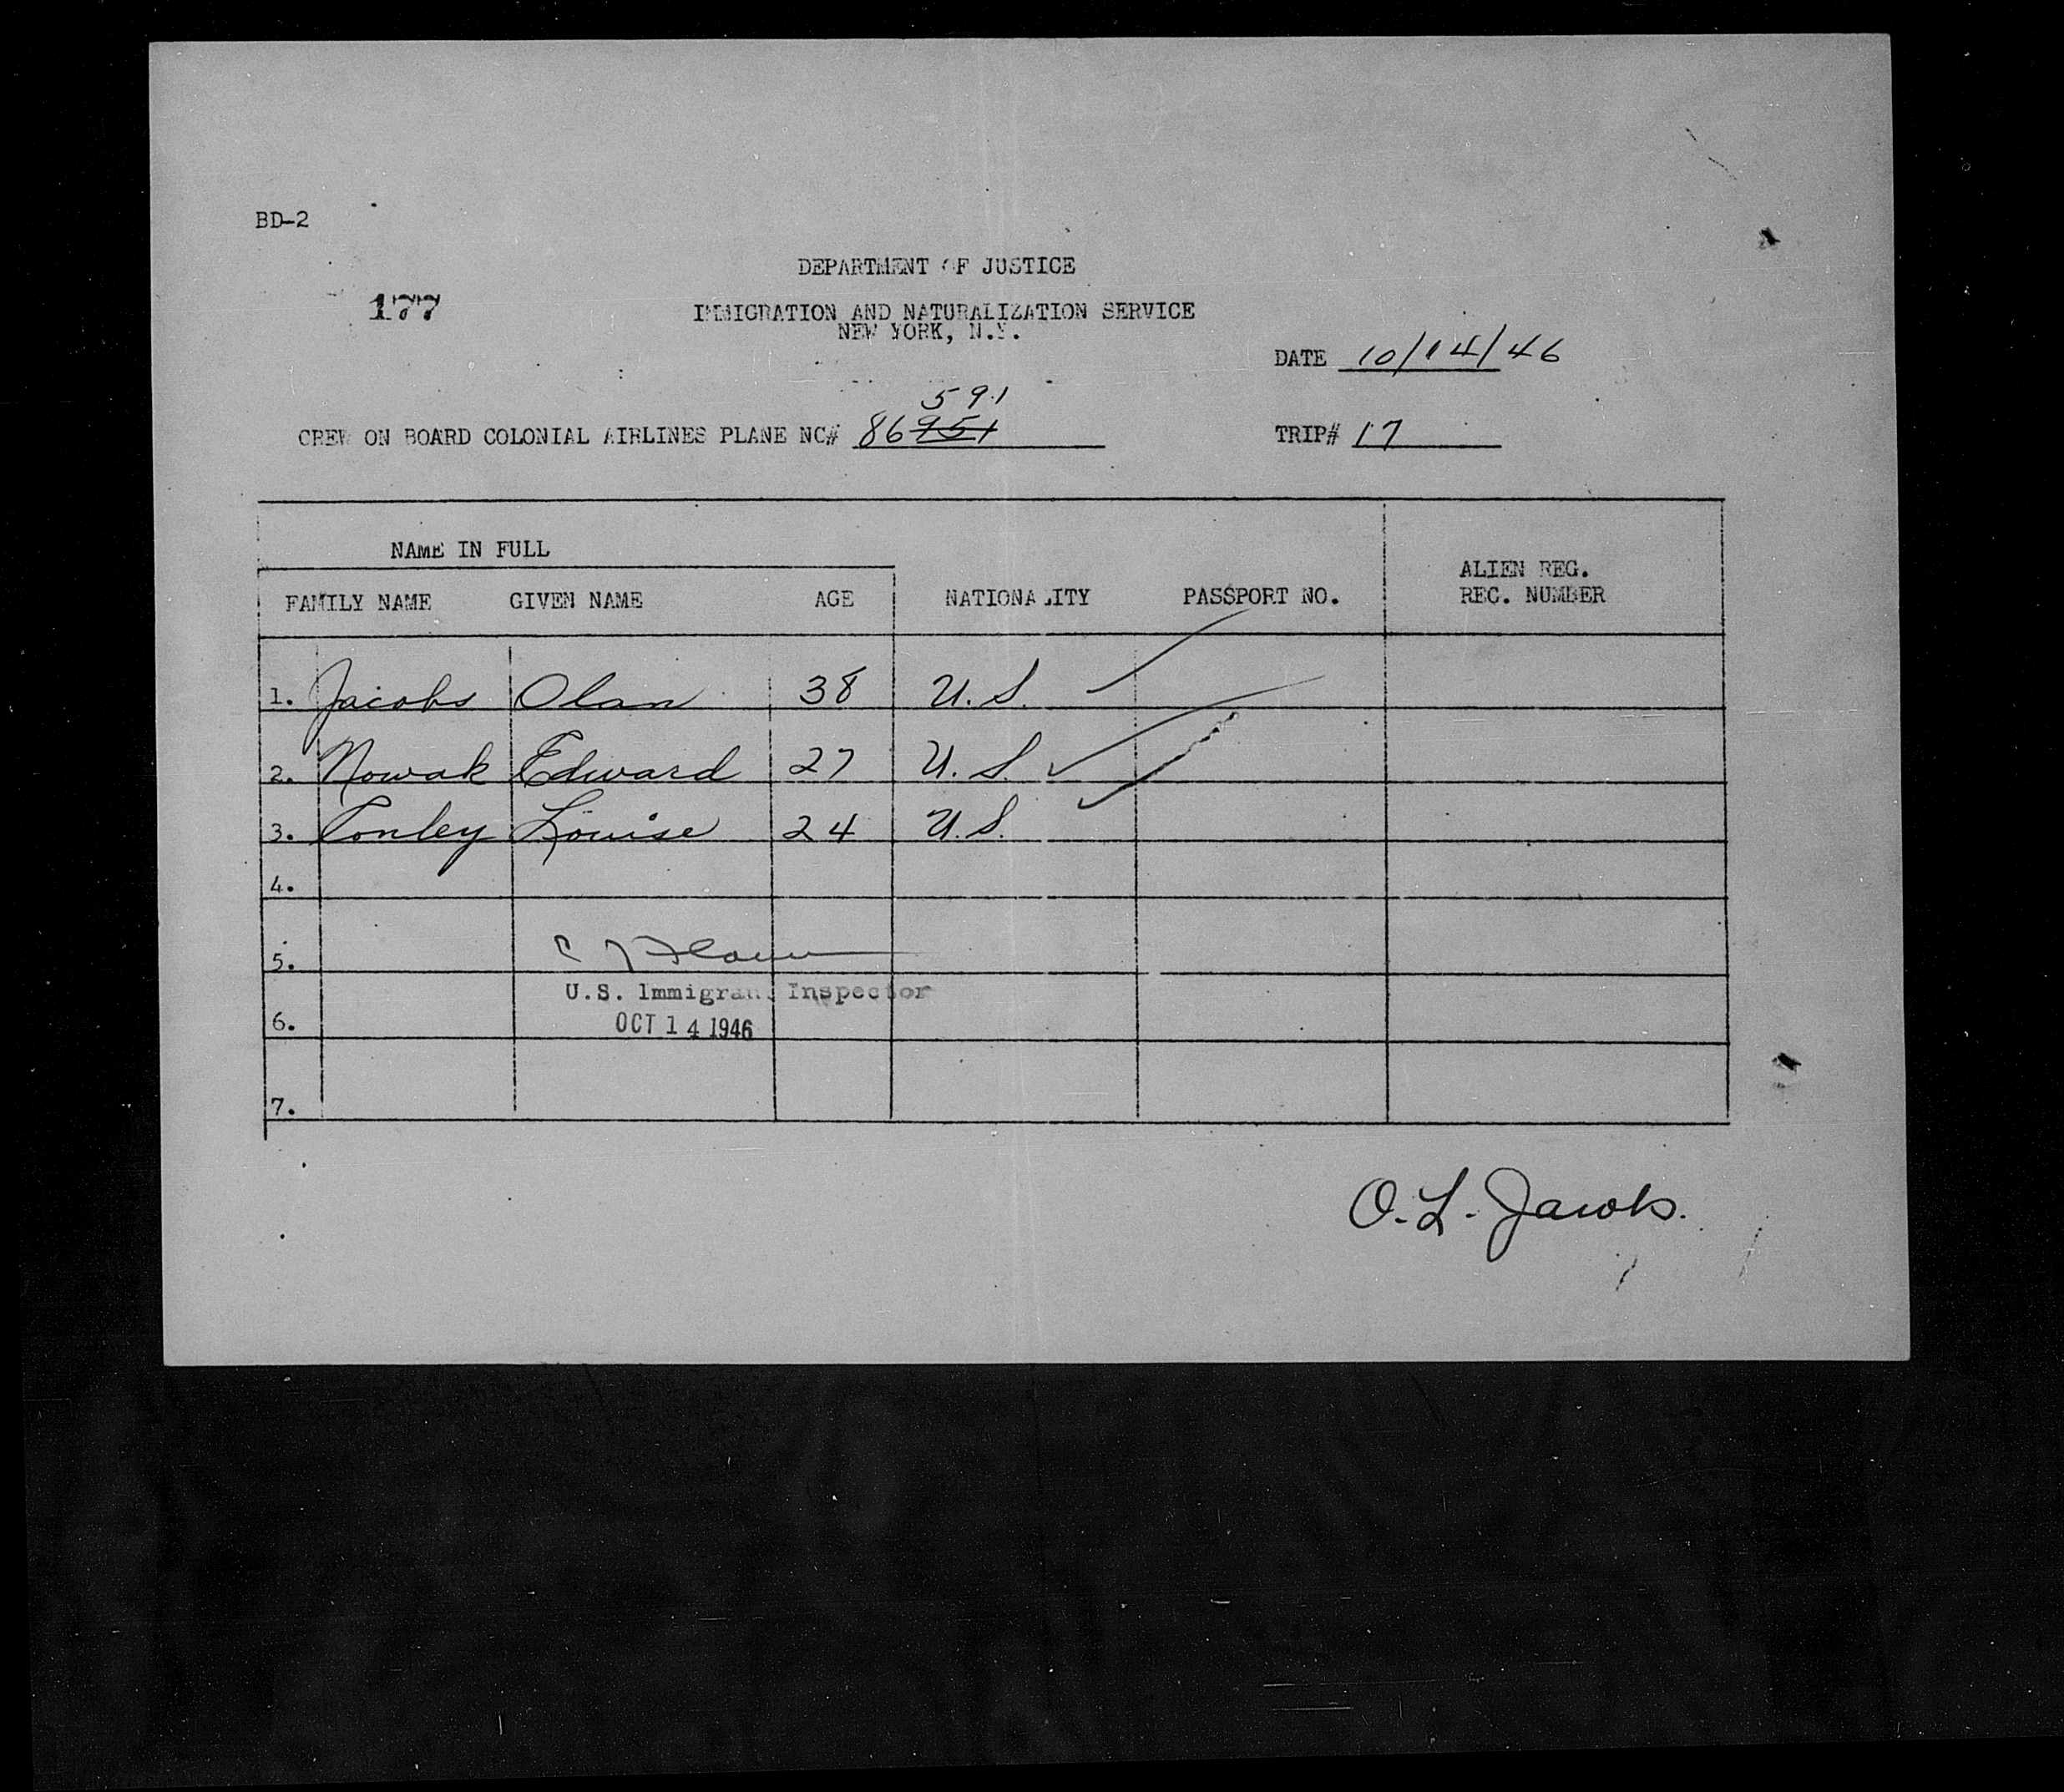 BD-2
DEPARTMENT OF JUSTICE
177
IMMIGRATION AND NATURALIZATION SERVICE
NEW YORK, N.Y.
DATE 10/14/46
591
CREW ON BOARD COLONIAL AIRLINES PLANE NC# 86951
TRIP# 17
NAME IN FULL
ALIEN REG.
FAMILY NAME GIVEN NAME AGE NATIONALITY PASSPORT NO. REC. NUMBER
1. Jacobs Olan 38 U.S.
2. Nowak Edward 27 U.S.
3. Conley Louise 24 U.S.
4.
5.
U.S. Immigrant Inspector
6. OCT 14 1946
7.
O. L. Jacobs.